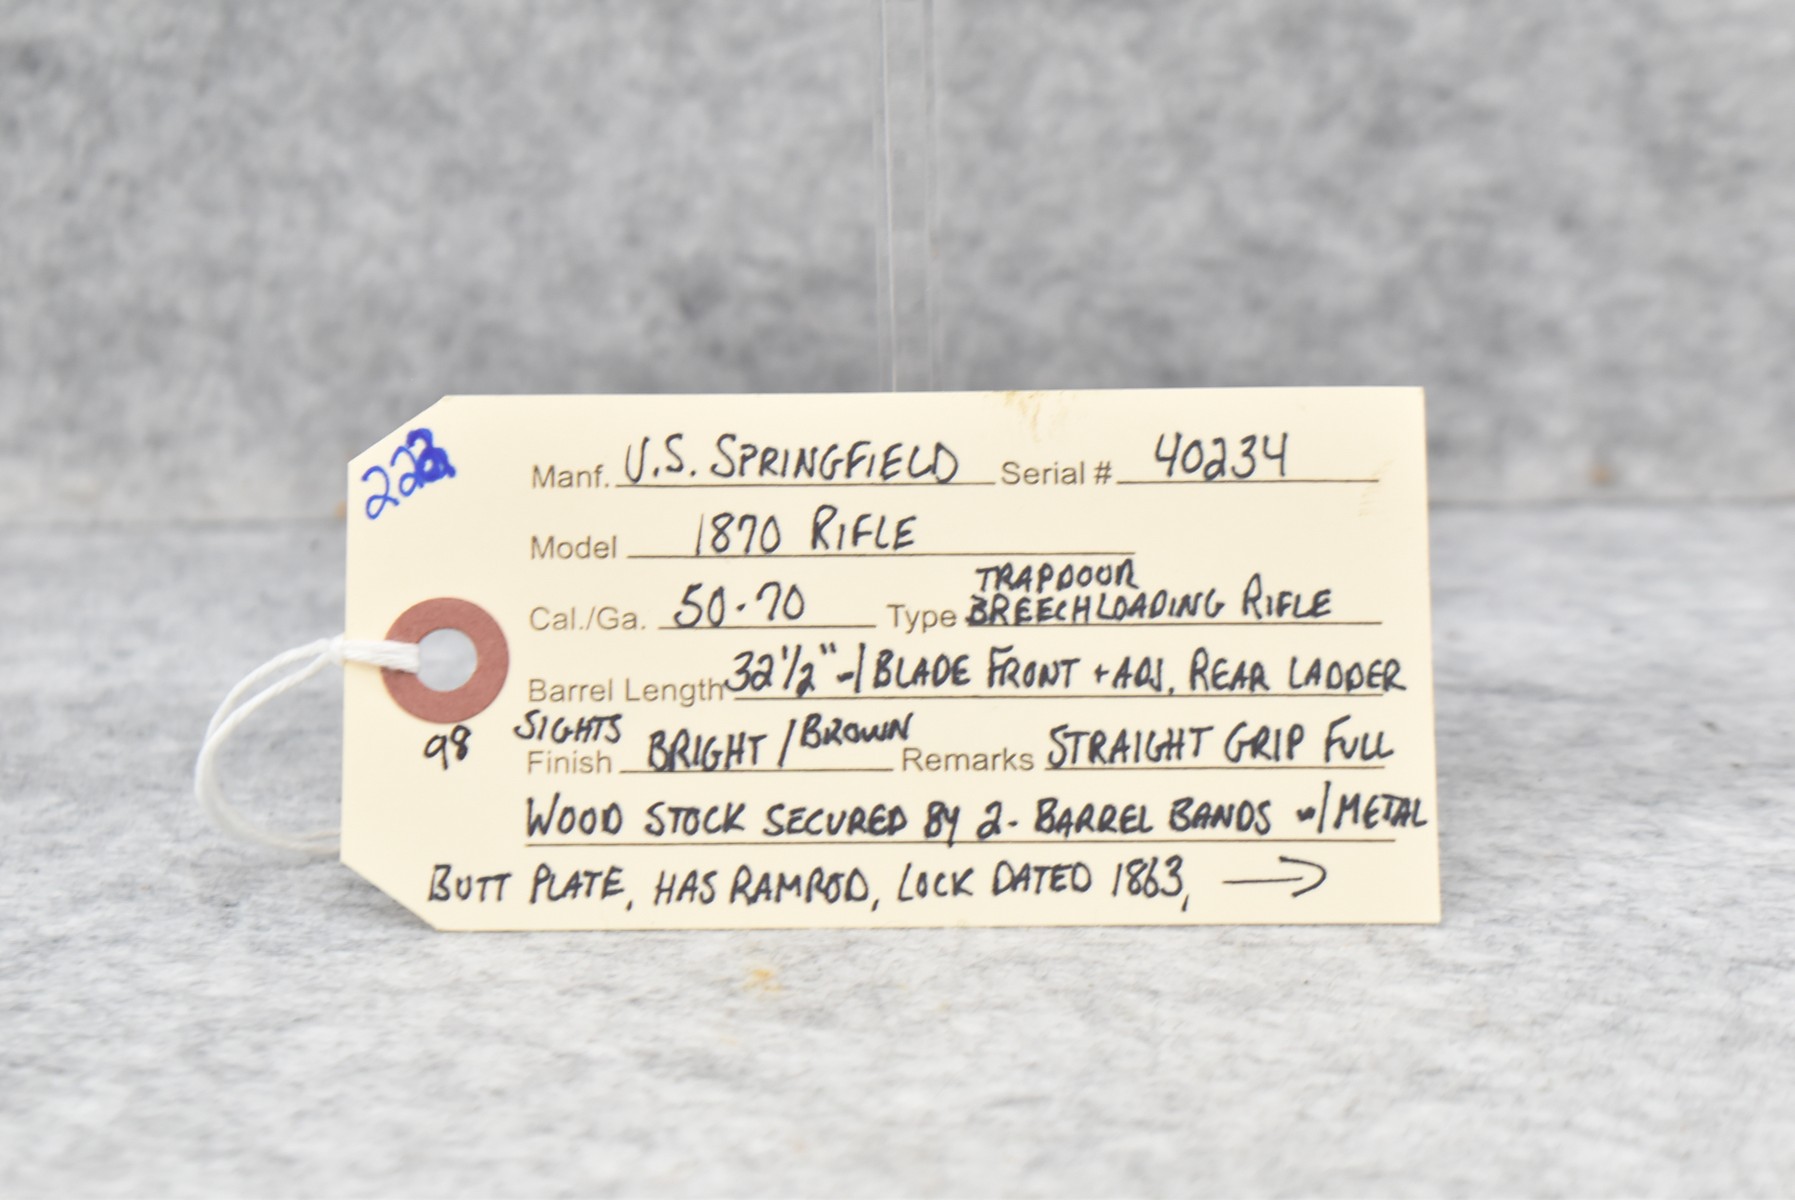 222
Manf. U.S. SPRINGFIELD Serial # 40234
Model 1870 RIFLE
Cal./Ga. 50-70 Type TRAPDOOR
BREECHLOADING RIFLE
Barrel Length 32 1/2" w/ BLADE FRONT + ADJ. REAR LADDER
SIGHTS
Finish BRIGHT / BROWN Remarks STRAIGHT GRIP FULL
98
WOOD STOCK SECURED BY 2-BARREL BANDS w/ METAL
BUTT PLATE, HAS RAMROD, LOCK DATED 1863, →